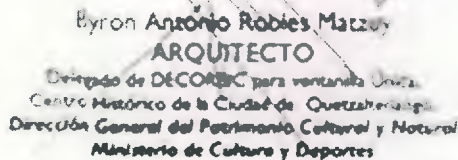 Byron Antonio Robles
ARQUITECTO
Delegado de DECORBIC para ventanilla
Centro Histórico de la Ciudad de Quetzaltenango
Dirección General del Patrimonio Cultural y Natural
Ministerio de Cultura y Deportes